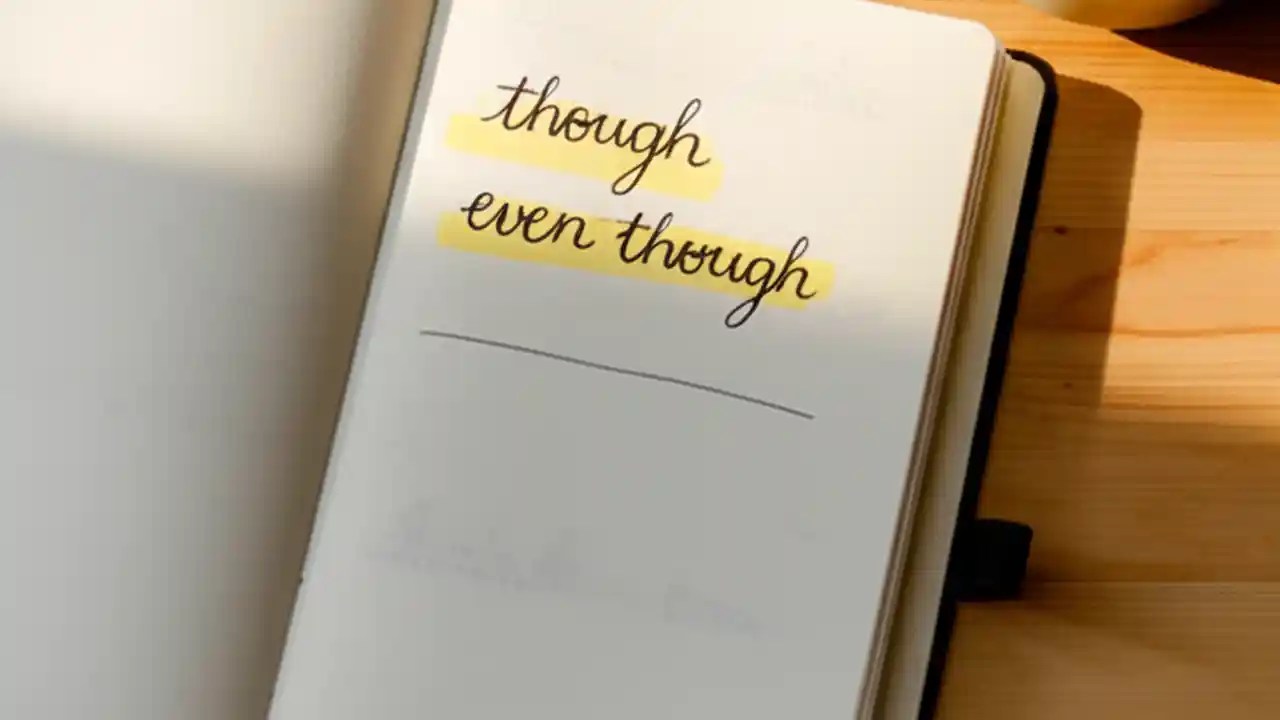 though
even though